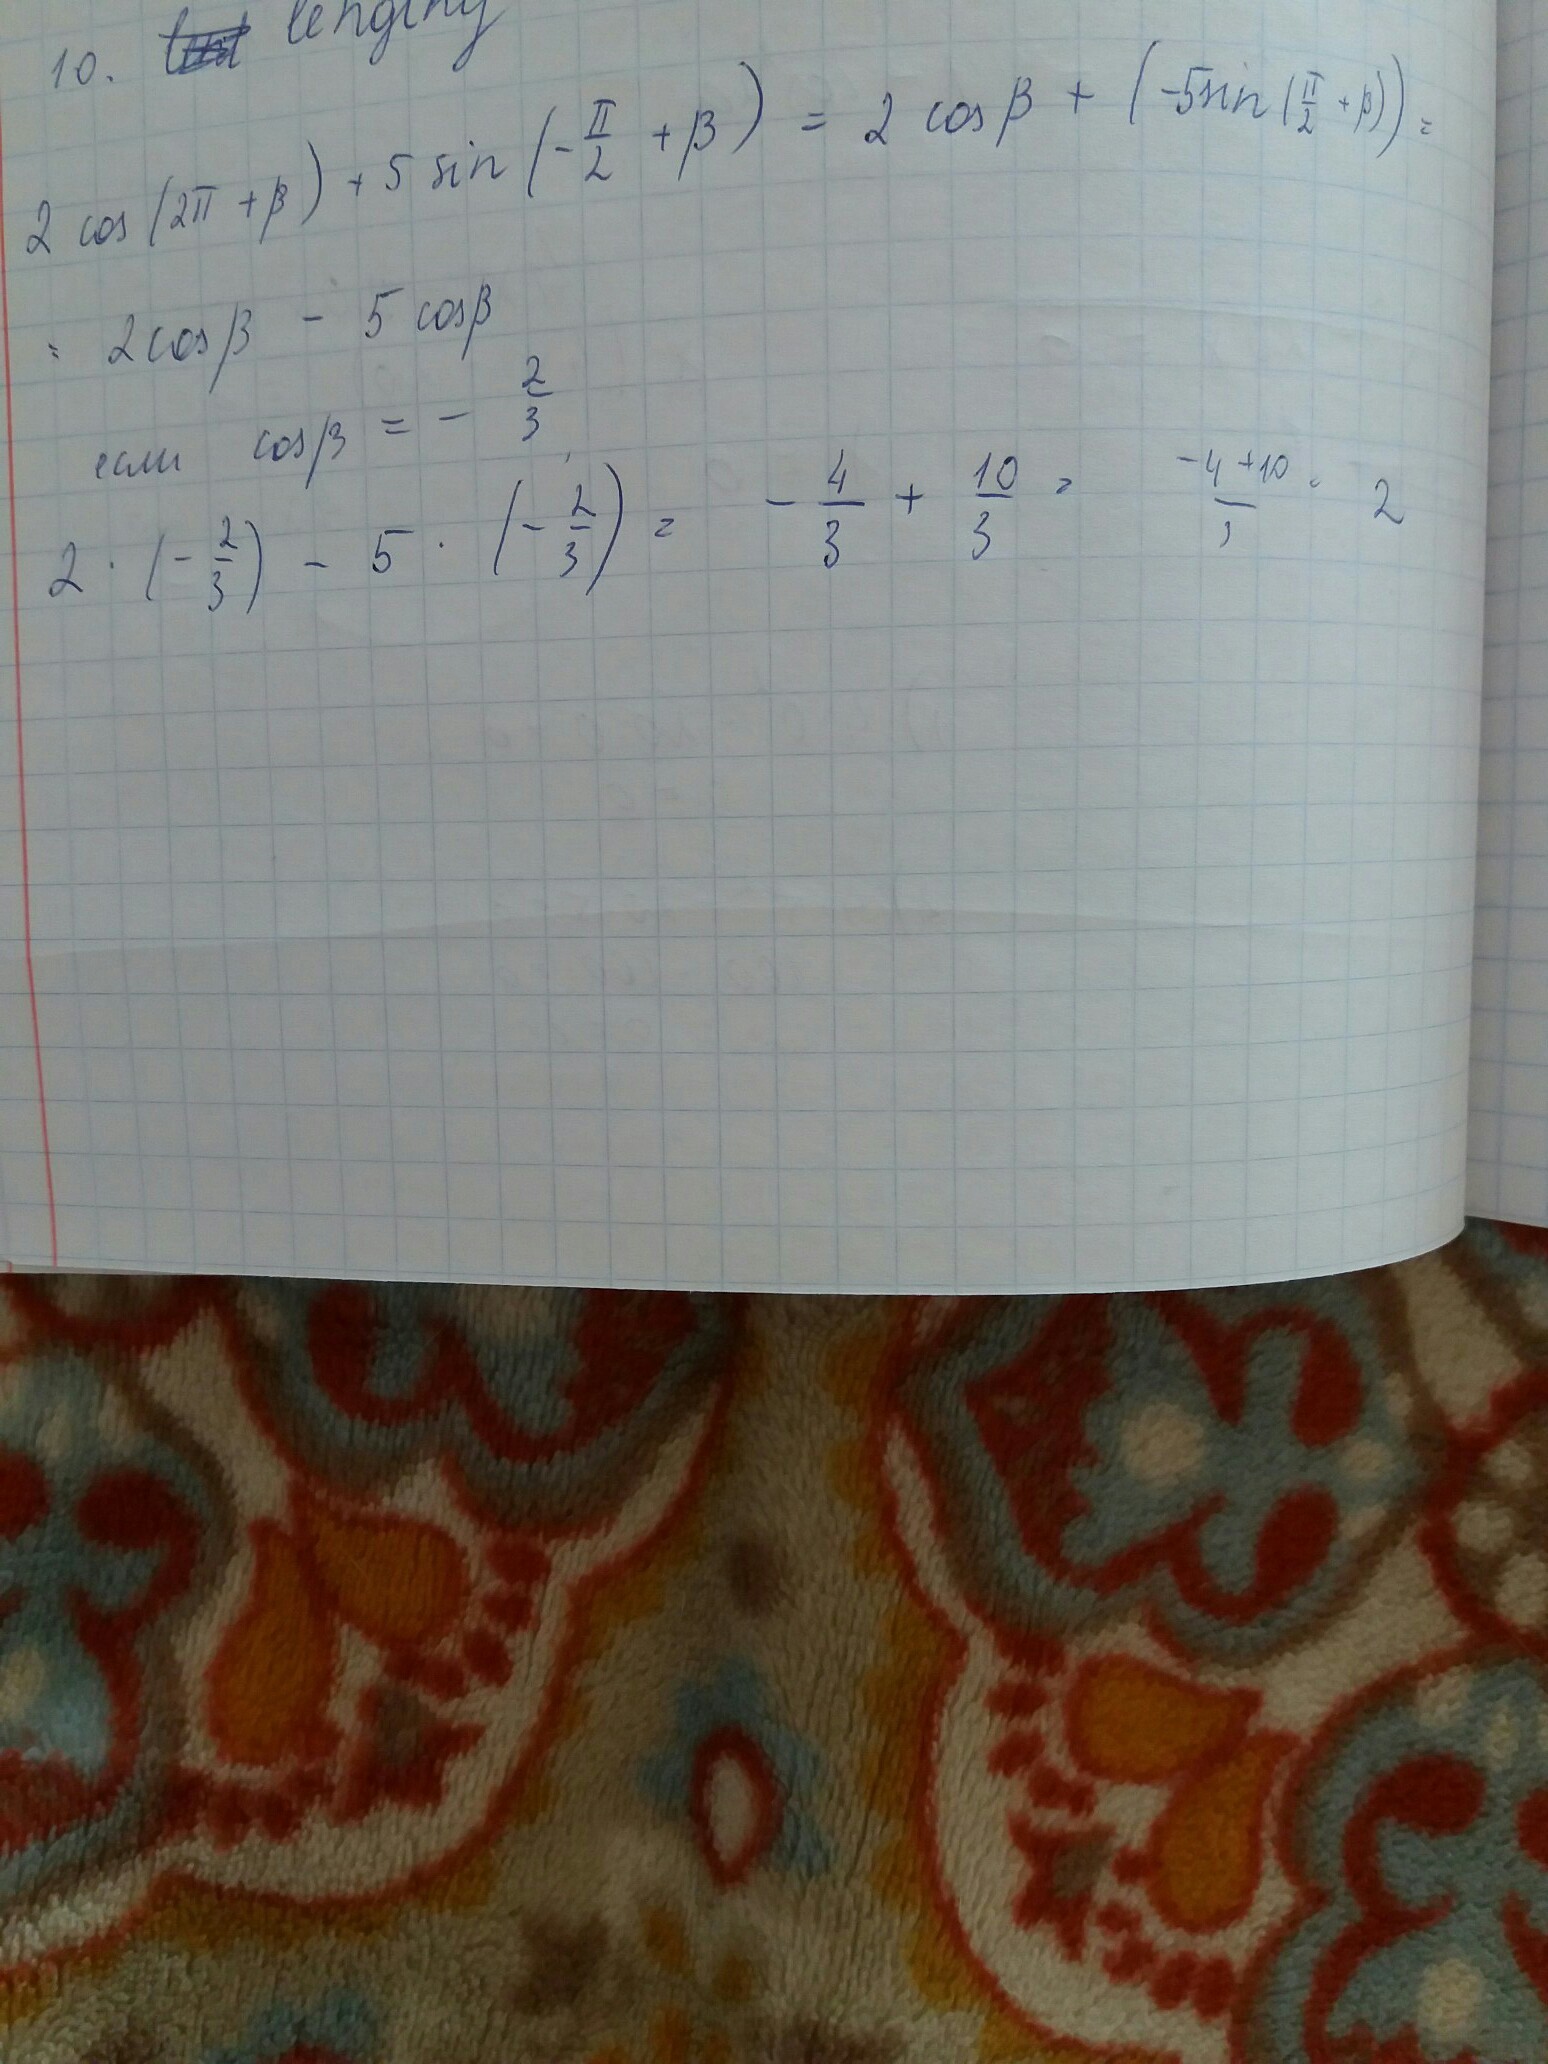 10. lenginy
2 cos(2π + β) + 5 sin(-π/2 + β) = 2 cos β + (-5 sin(π/2 + β)) =
= 2 cos β - 5 cos β
если cos β = - 2/3
2 · (- 2/3) - 5 · (- 2/3) = - 4/3 + 10/3 = -4+10/3 = 2